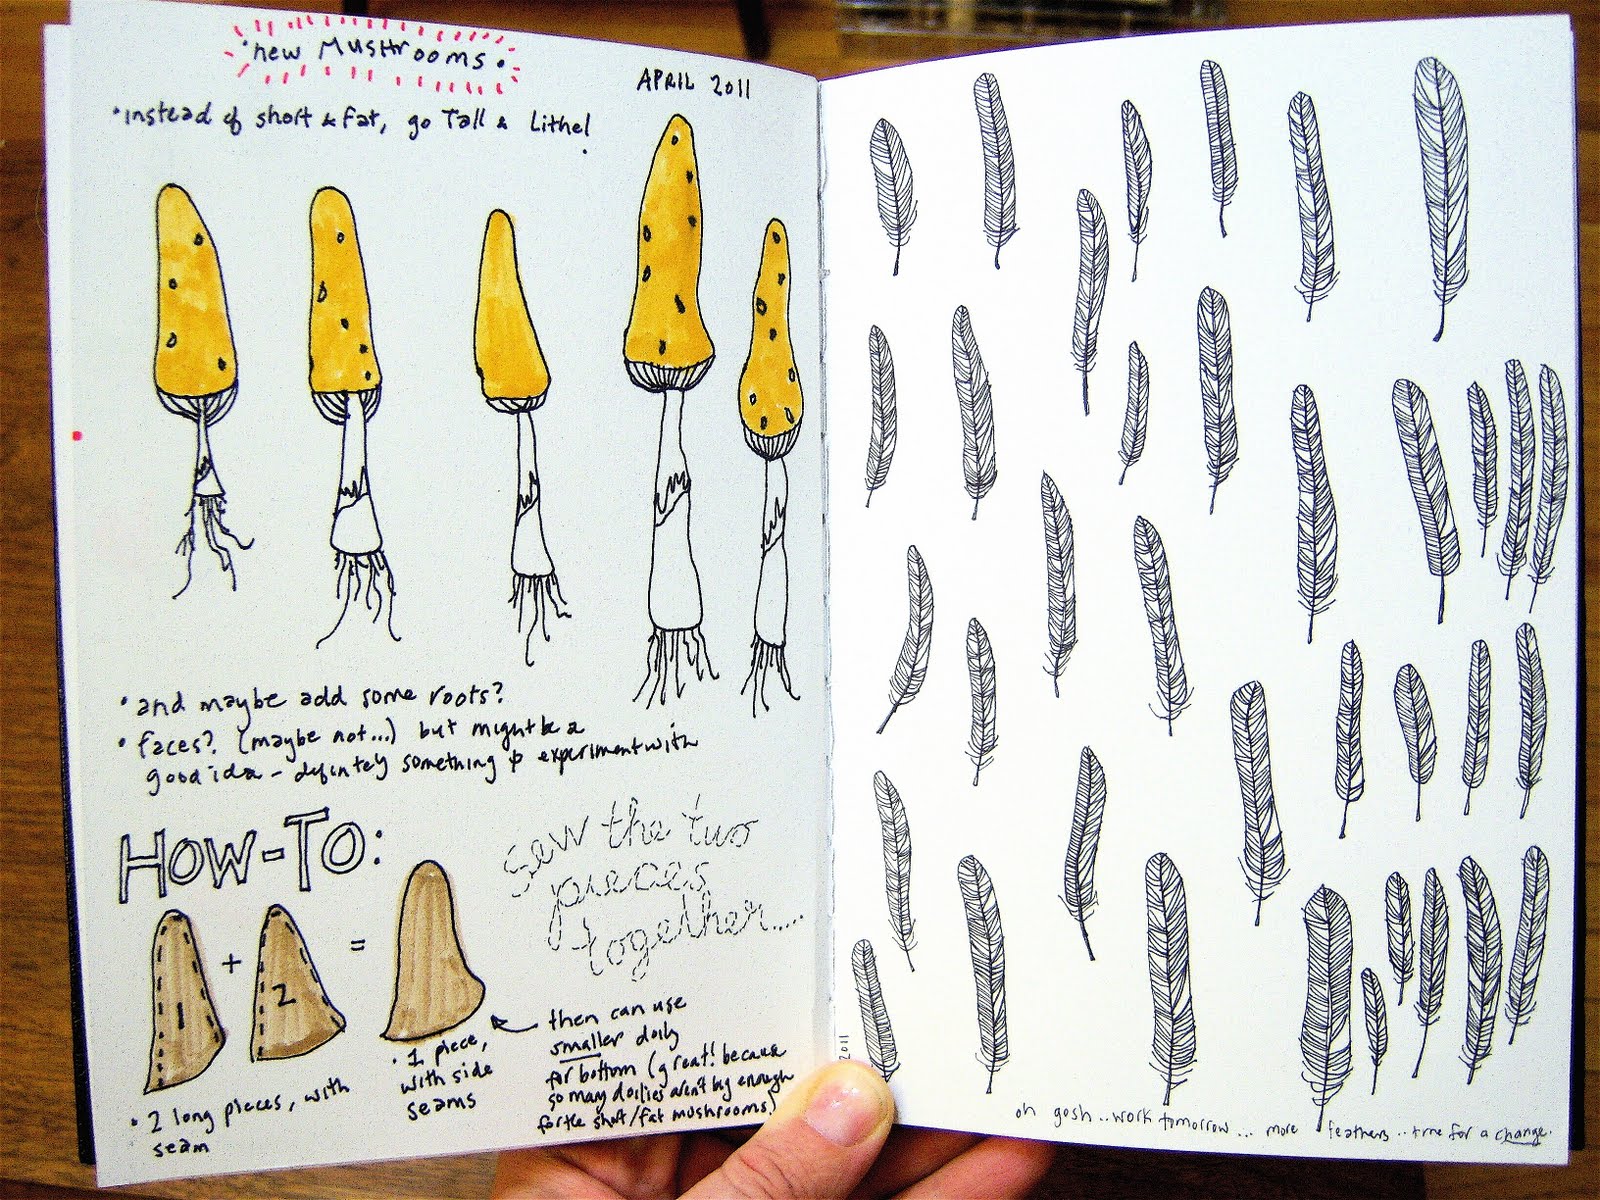 • new MUSHrooms •
APRIL 2011
• instead of short & fat, go Tall & Lithe!
• and maybe add some roots?
• faces? (maybe not...) but might be a
good idea – definitely something to experiment with
HOW-TO:
sew the two
pieces
together....
1 + 2 =
• 2 long pieces, with
seam
• 1 piece,
with side
seams
then can use
smaller doily
for bottom (great! because
so many doilies aren't big enough
for the short/fat mushrooms)
2011
oh gosh.. work tomorrow... more feathers.. time for a change.